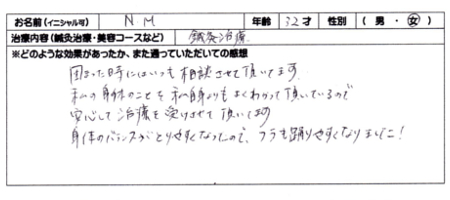 お名前(イニシャル可) N M 年齢 32才 性別 ( 男 ・ 女 )
治療内容(鍼灸治療・美容コースなど) 鍼灸治療
※どのような効果があったか、また通っていただいての感想
困まった時にはいつも相談させて頂いてます。
私の身体のことを私自身よりもよくわかって頂いているので
安心して治療を受けさせて頂いてます
身体のバランスがとりやすくなったので、フラも踊りやすくなりました!